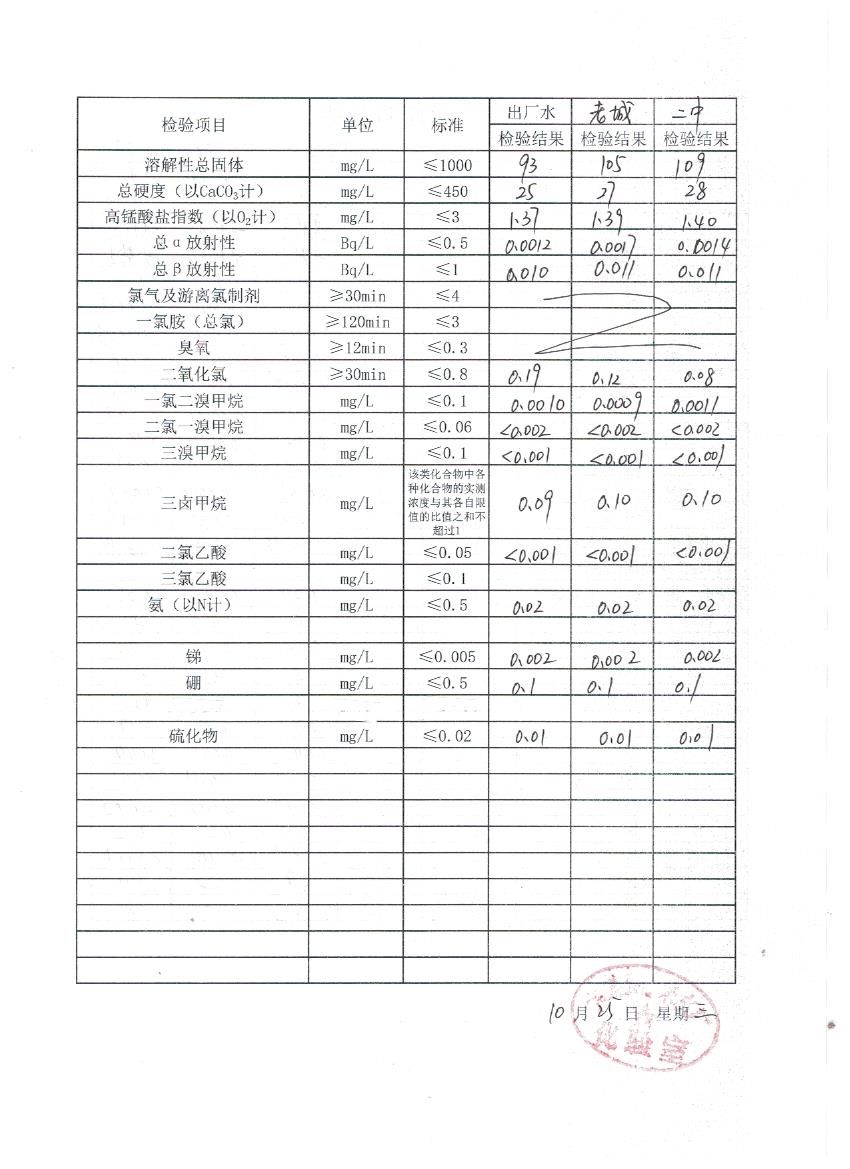 检验项目 单位 标准 出厂水 老城 二中
检验结果 检验结果 检验结果
溶解性总固体 mg/L ≤1000 93 105 109
总硬度（以CaCO₃计） mg/L ≤450 25 27 28
高锰酸盐指数（以O₂计） mg/L ≤3 1.37 1.39 1.40
总α放射性 Bq/L ≤0.5 0.0012 0.0017 0.0014
总β放射性 Bq/L ≤1 0.010 0.011 0.011
氯气及游离氯制剂 ≥30min ≤4
一氯胺（总氯） ≥120min ≤3
臭氧 ≥12min ≤0.3
二氧化氯 ≥30min ≤0.8 0.19 0.12 0.08
一氯二溴甲烷 mg/L ≤0.1 0.0010 0.0009 0.0011
二氯一溴甲烷 mg/L ≤0.06 <0.002 <0.002 <0.002
三溴甲烷 mg/L ≤0.1 <0.001 <0.001 <0.001
三卤甲烷 mg/L 该类化合物中各
种化合物的实测
浓度与其各自限
值的比值之和不
超过1 0.09 0.10 0.10
二氯乙酸 mg/L ≤0.05 <0.001 <0.001 <0.001
三氯乙酸 mg/L ≤0.1
氨（以N计） mg/L ≤0.5 0.02 0.02 0.02
锑 mg/L ≤0.005 0.002 0.002 0.002
硼 mg/L ≤0.5 0.1 0.1 0.1
硫化物 mg/L ≤0.02 0.01 0.01 0.01
10月25日 星期三
化验室